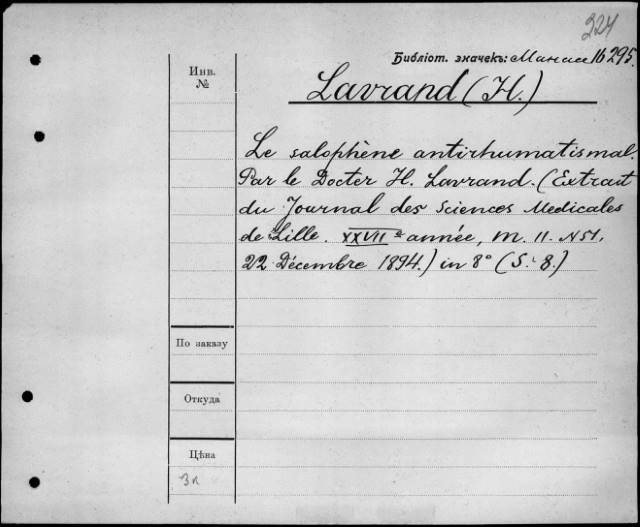 324
Библіот. значекъ: Манасе 16295.
Инв.
№
Lavrand (H.)
Le salophène antirhumatismal.
Par le Docter H. Lavrand. (Extrait
du Journal des Sciences Medicales
de Lille. XXVII e année, m. II. N51,
22 Décembre 1894.) in 8° (S. 8.)
По заказу
Откуда
Цѣна
3 п